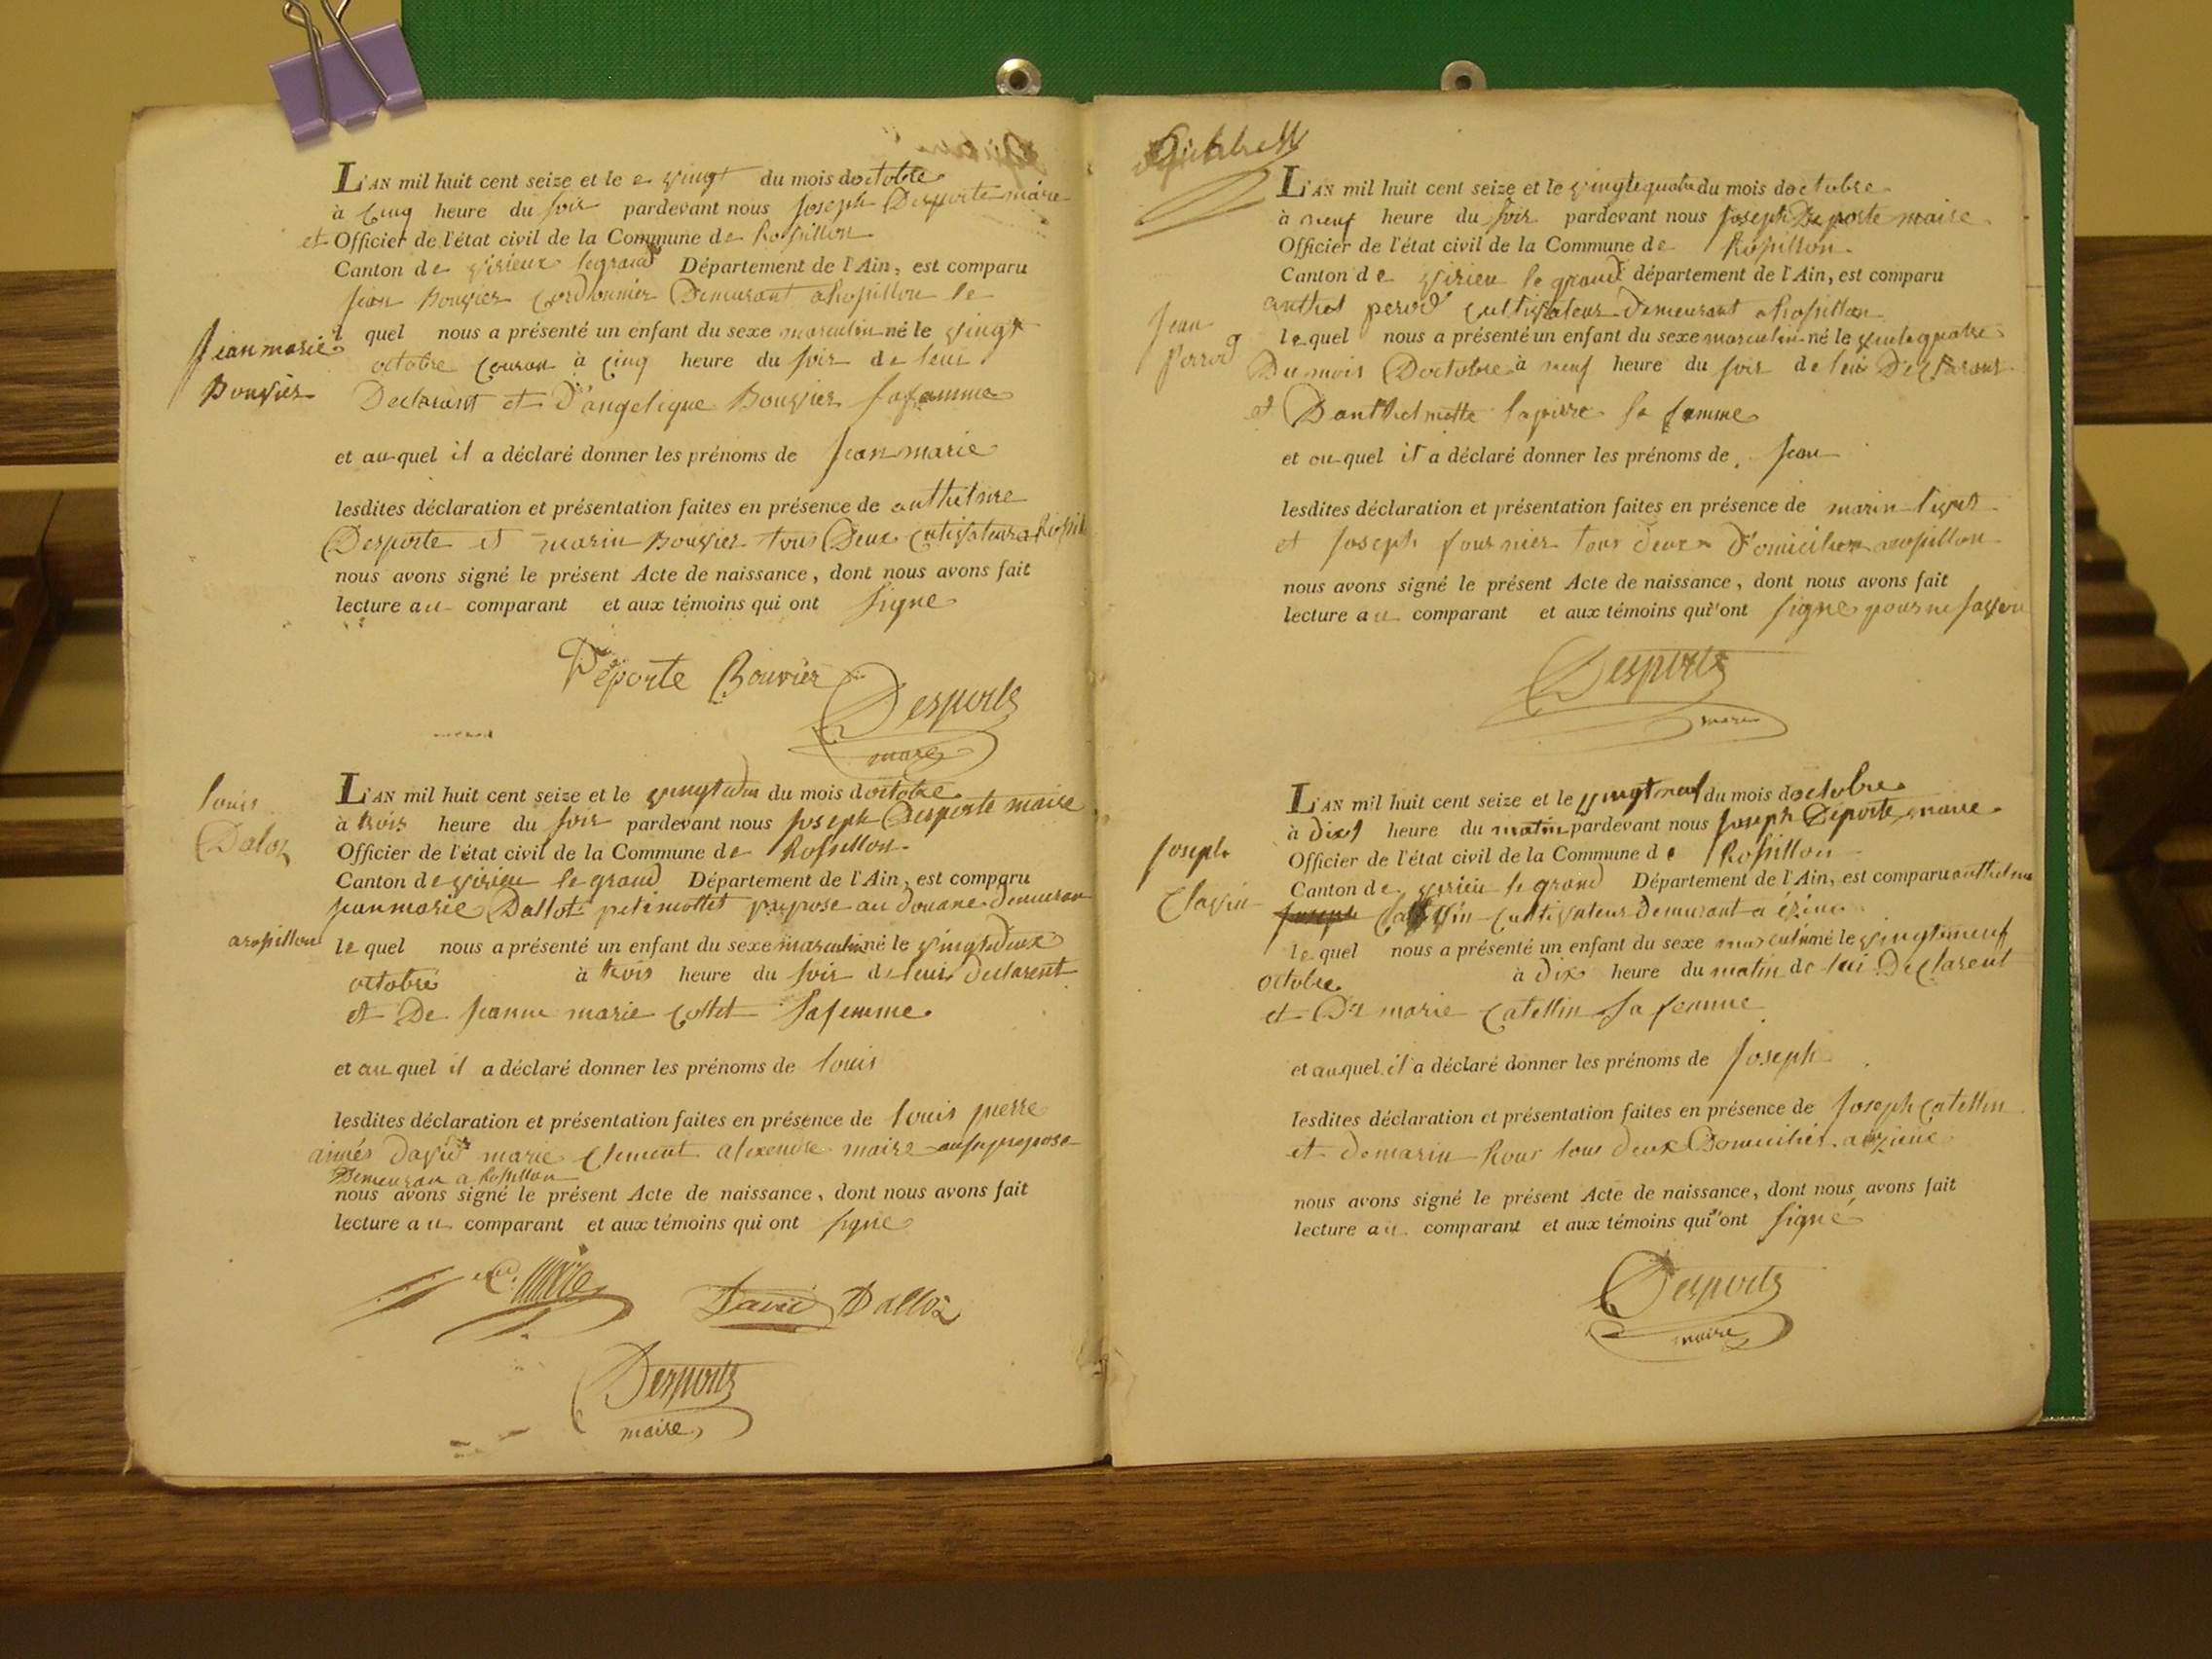 L'AN mil huit cent seize et le vingt du mois doctobre
à Cinq heure du soir pardevant nous Joseph Desporte maire
et Officier de l'état civil de la Commune de Rossillon
Canton de virieux legrand Département de l'Ain, est comparu
Jean Bouvier Cordonnier Demeurant aRossillon le
quel nous a présenté un enfant du sexe masculin né le vingt
octobre Couran à Cinq heure du soir de leur
Declarant et D'angelique Bouvier sa famme
Jean marie
Bouvier
et au quel il a déclaré donner les prénoms de Jean marie
lesdites déclaration et présentation faites en présence de
Desporte et marin Bouvier tous Deux
nous avons signé le présent Acte de naissance, dont nous avons fait
lecture au comparant et aux témoins qui ont signe
Déporte Bouvier
Desporte
maire
louis
Daloz
L'AN mil huit cent seize et le vingtdeu du mois doctobre
à trois heure du soir pardevant nous Joseph Desporte maire
Officier de l'état civil de la Commune de Rossillon
Canton de virieu le grand Département de l'Ain, est comparu
jean marie Dallot petimottet prepose au Douane Demeuran
arossillon le quel nous a présenté un enfant du sexe masculin né le vingtedeux
octobre à trois heure du soir de leui declarent
et De Jeanne marie Collet Safemme
et au quel il a déclaré donner les prénoms de louis
lesdites déclaration et présentation faites en présence de louis pierre
aimés David marie Clement alexendre maire
Demeuran a Rossillon
nous avons signé le présent Acte de naissance, dont nous avons fait
lecture au comparant et aux témoins qui ont signe
David Dalloz
Desporte
maire
L'AN mil huit cent seize et le vingtequatre du mois doctobre
à neuf heure du soir pardevant nous Joseph Desporte maire
Officier de l'état civil de la Commune de Rossillon
Canton de virieu le grand département de l'Ain, est comparu
anthel perrod Cultivateur Demeurant a Rossillon
Jean
Perrod
le quel nous a présenté un enfant du sexe masculin né le vintequatre
Du mois Doctobre à neuf heure du soir de leui Declarant
et Danthelmette lapierre sa famme
et au quel il a déclaré donner les prénoms de Jean
lesdites déclaration et présentation faites en présence de marin
et Joseph fournier tous deux D'omicilier arossillon
nous avons signé le présent Acte de naissance, dont nous avons fait
lecture au comparant et aux témoins qui ont signe pour ne savoir
Desporte
maire
L'AN mil huit cent seize et le vingtneuf du mois doctobre
à dix heure du matin pardevant nous Joseph Déporte maire
Officier de l'état civil de la Commune de Rossillon
Joseph
Clavin
Canton de virieu le grand Département de l'Ain, est comparu anthelme
Cultivateur Demeurant a
le quel nous a présenté un enfant du sexe masculin né le vingtineuf
octobre à dix heure du matin de lui Declarent
et De marie Catellin Sa femme
et au quel il a déclaré donner les prénoms de Joseph
lesdites déclaration et présentation faites en présence de Joseph Catellin
et demarin Roux tous deux Domiciliés
nous avons signé le présent Acte de naissance, dont nous avons fait
lecture au comparant et aux témoins qui ont signé
Desporte
maire